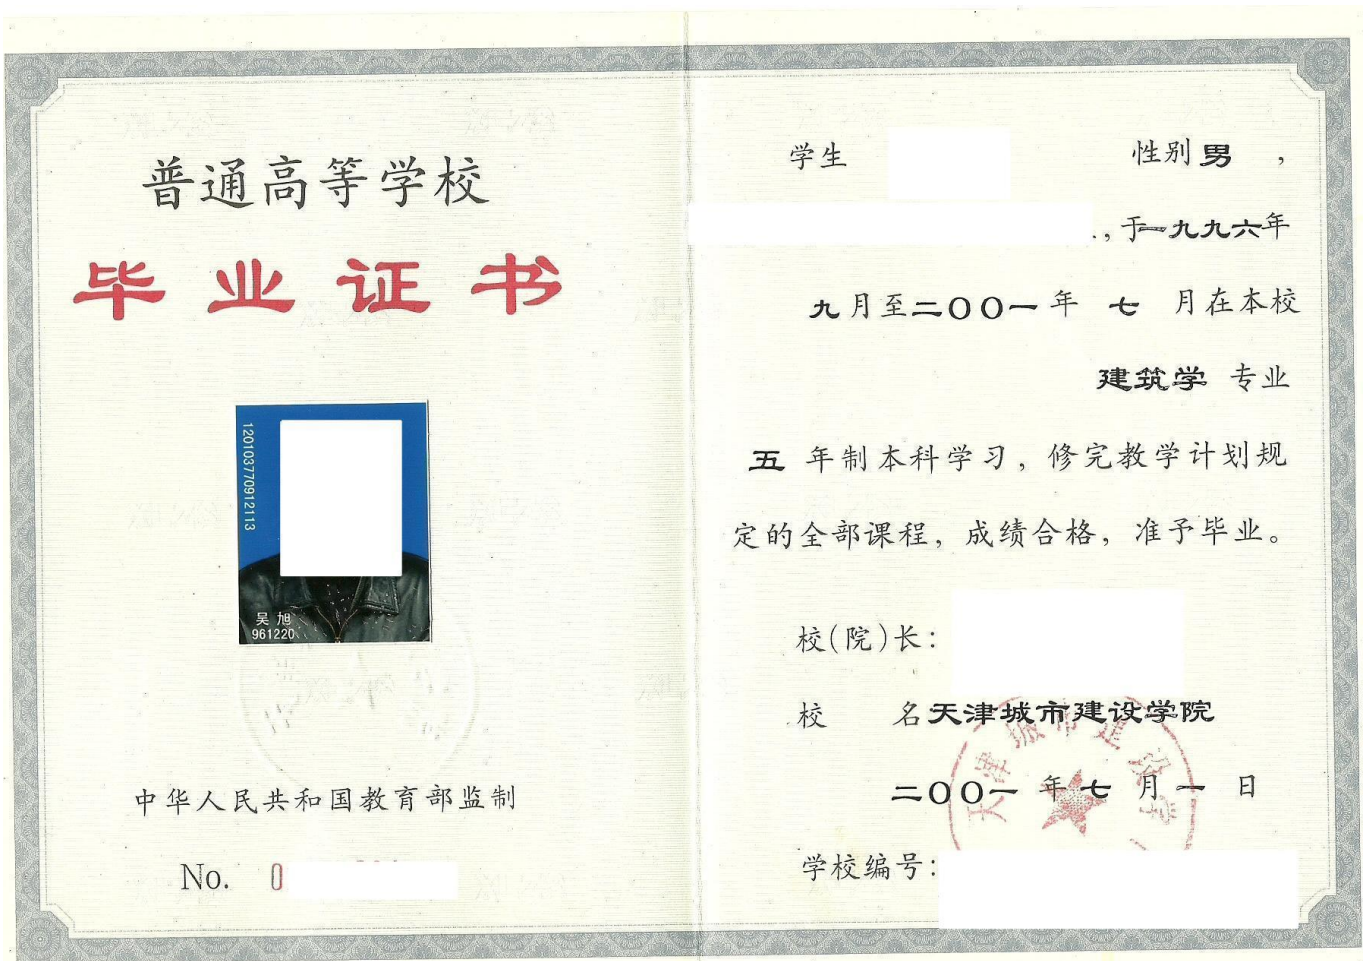 普通高等学校
毕业证书
120103770912113
吴旭
961220
中华人民共和国教育部监制
No. 0
学生 性别男，
，于一九九六年
九月至二〇〇一年 七 月在本校
建筑学 专业
五 年制本科学习，修完教学计划规
定的全部课程，成绩合格，准予毕业。
校(院)长：
校 名天津城市建设学院
二〇〇一年七月一日
学校编号：